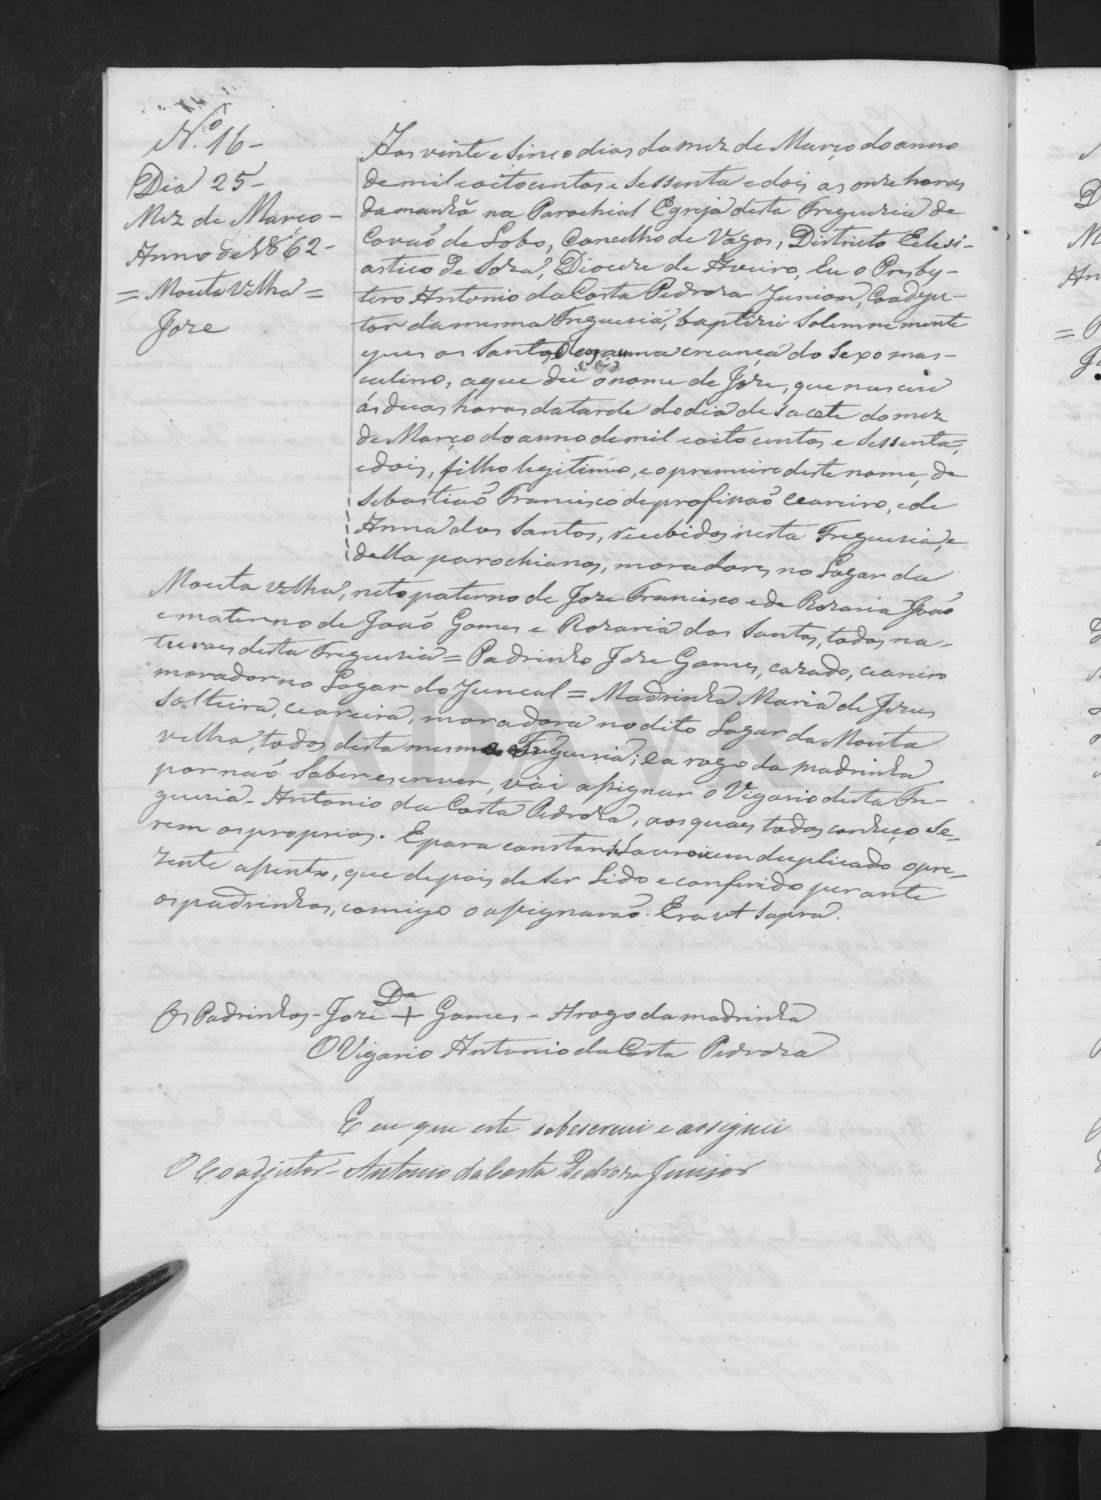 Nº 16-
Dia 25-
Mez de Março-
Anno de 1862-
= Mouta Velha =
Joze
Aos vinte e sinco dias do mez de Março do anno
de mil e oito centos e sessenta e dois as onze horas
da manhã na Parochial Egreja desta Freguezia de
Covaõ de Lobo, Concelho de Vagos, Districto Eclesi-
astico de Soza, Dioceze de Aveiro, Eu o Presby-
tero Antonio da Costa Pedroza Junior, Coadju-
tor da mesma Freguezia, baptizei solemnemente
e puz os Santos a uma creança do sexo mas-
culino, a que dei o nome de Joze, que nasceu
ás duas horas da tarde do dia de sacete do mez
de Março do anno de mil e oito centos e sessenta
e dois, filho legitimo, e o premeiro deste nome, de
Sebastiaõ Francisco de profissaõ ceareiro, e de
Anna dos Santos, recebidos nesta Freguezia, e
della parochianos, moradores no Lugar da
Mouta velha, neto paterno de Joze Francisco e de Rozaria Joaõ
e materno de Joaõ Gomes e Rozaria dos Santos, todos na-
turaes desta Freguezia = Padrinho Joze Gomes, cazado, ceareiro
morador no Lugar do Juncal = Madrinha Maria de Jezus
solteira, ceareira, moradora no dito Lugar da Mouta
velha, todos desta mesma Freguezia; e a rogo da madrinha
por naõ saber escrever, vai assignar o Vigario desta Fre-
guezia - Antonio da Costa Pedroza, aos quaes todos conheço se-
rem os proprios. E para constar lavrei em duplicado o pre-
zente assento, que depois de ser lido e conferido perante
os padrinhos, comigo o assignaraõ. Era ut supra.
Os Padrinhos - Joze + Gomes - A rogo da madrinha
O Vigario Antonio da Costa Pedroza
E eu que este sobescrevi e assignei
O Coadjutor - Antonio da Costa Pedroza Junior
ADAVR